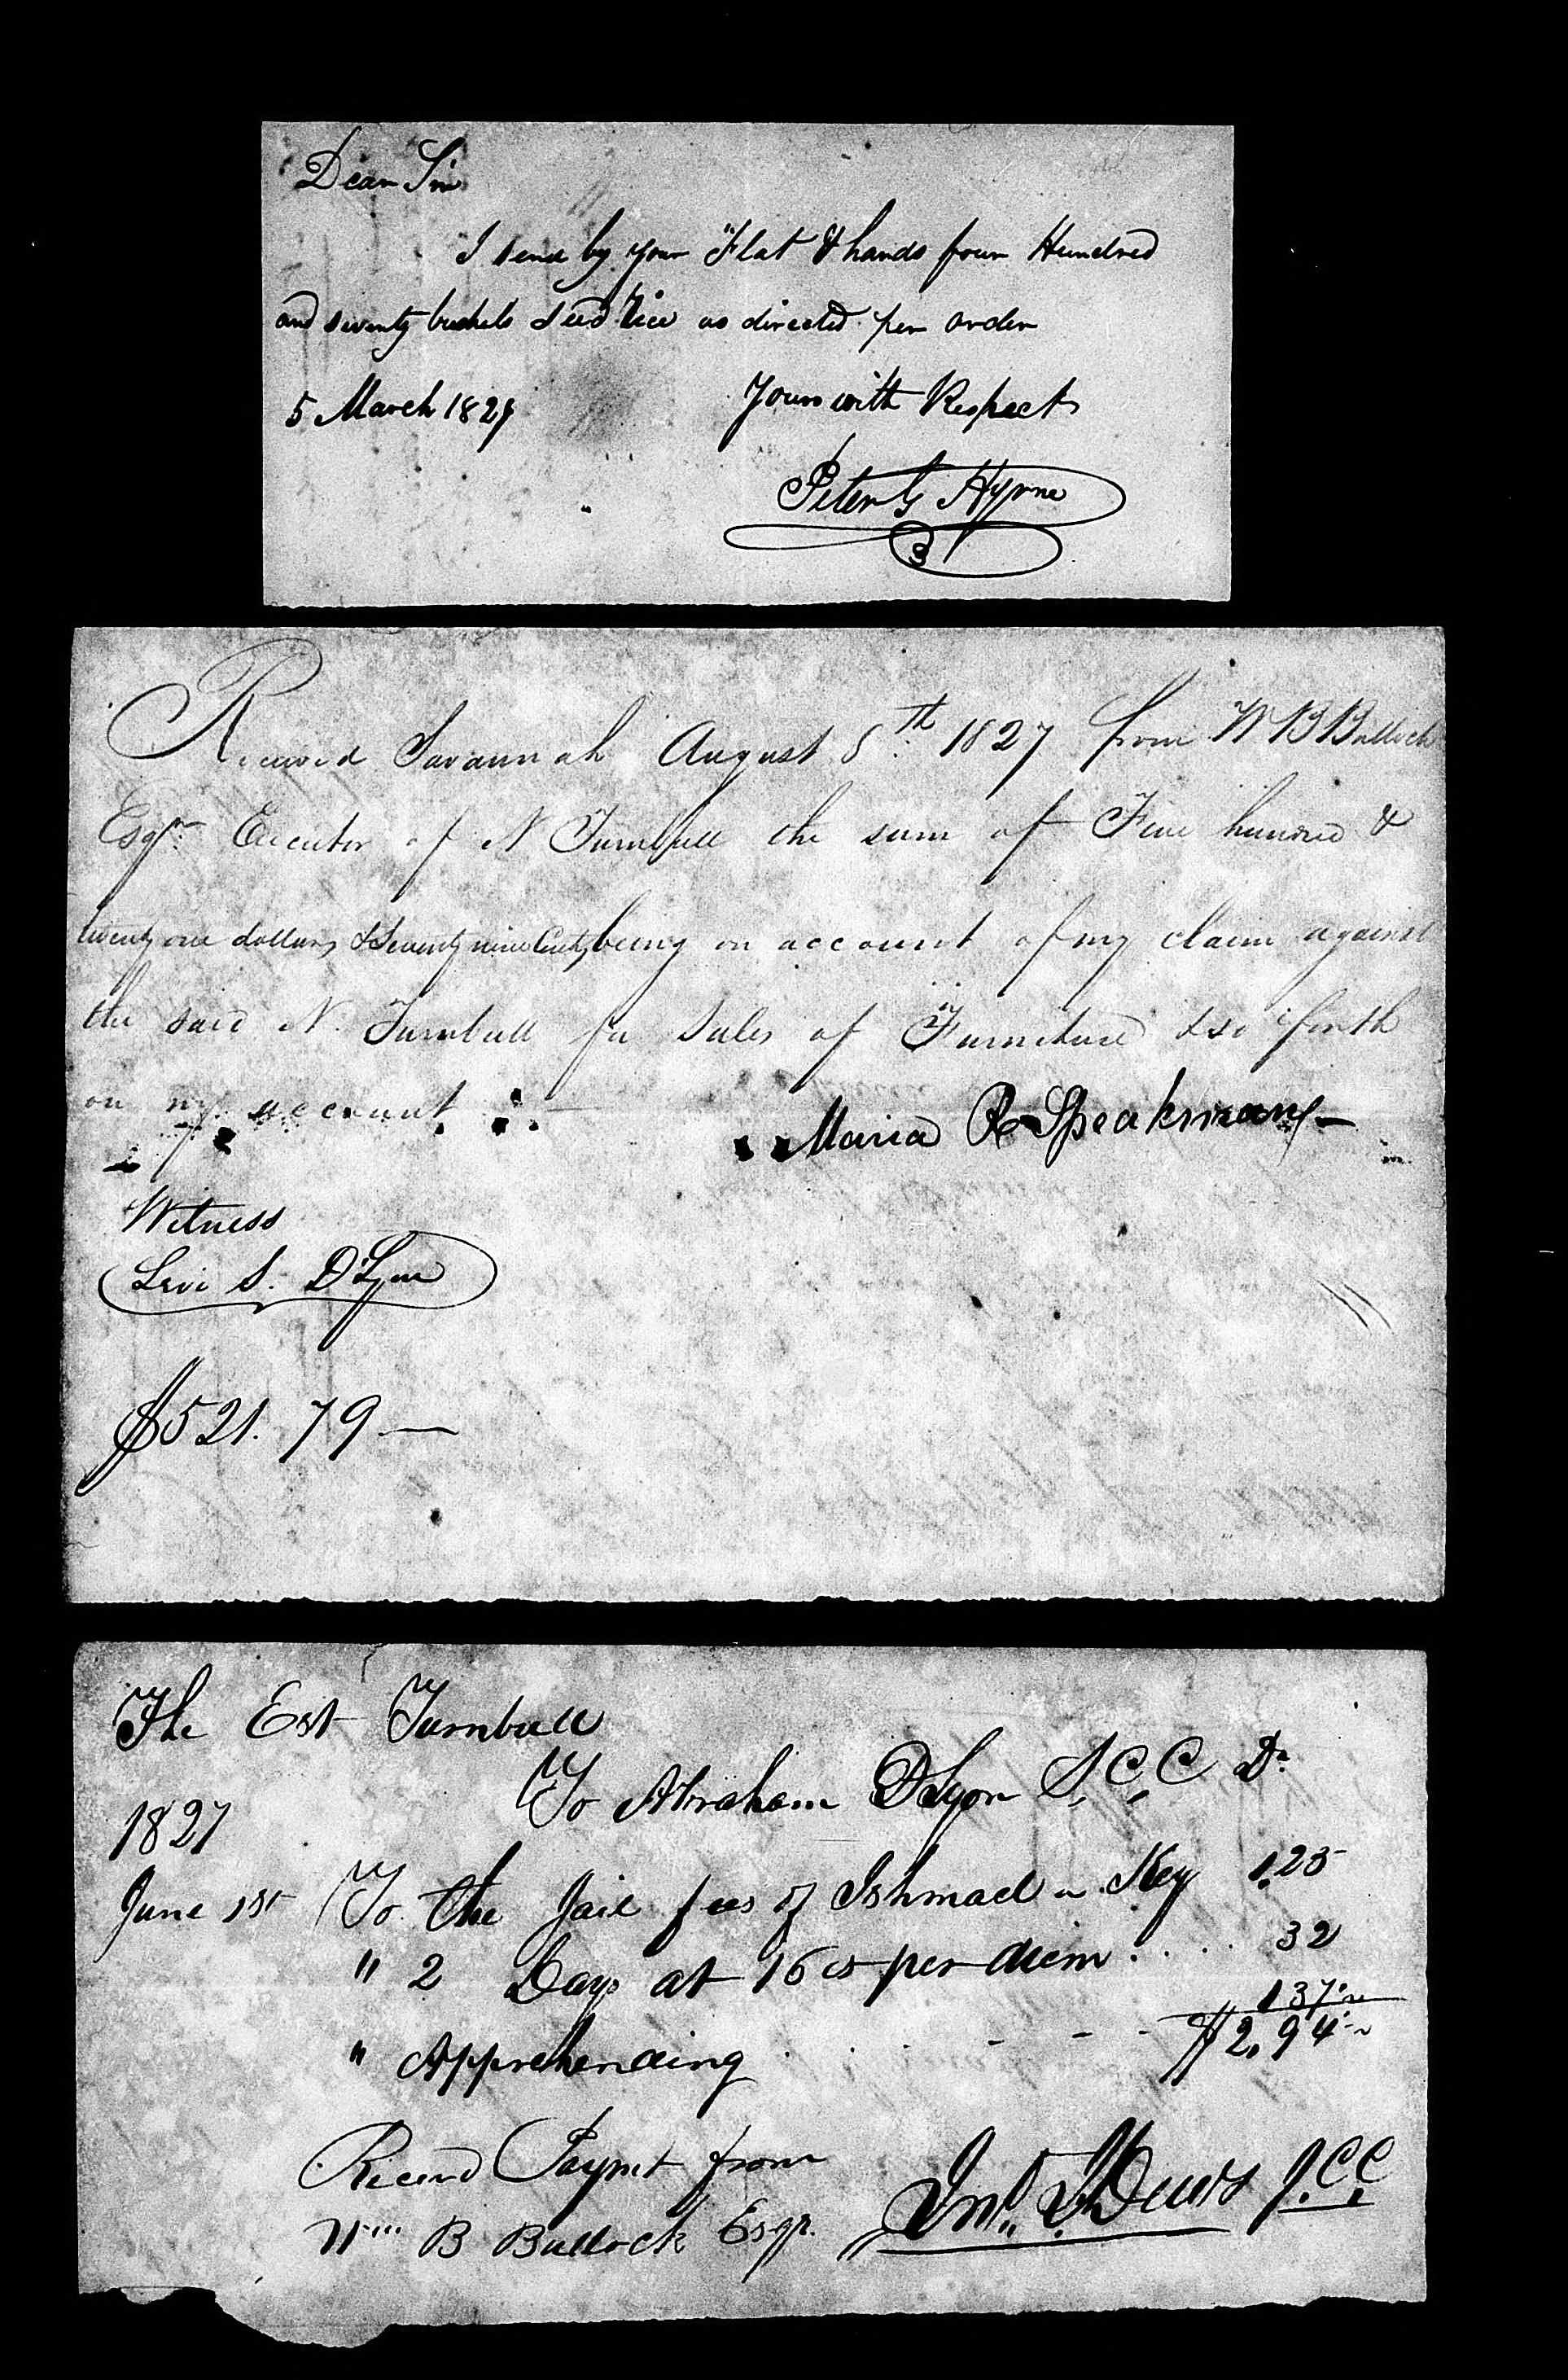 Dear Sir
I send by your Flat & hands four Hundred
and seventy bushels Seed Rice as directed per order
5 March 1827
Yours with Respect
Peter G Hyrne
Received Savannah August 8th 1827 from W B Bulloch
Esqr. Executor of N Turnbull the sum of Five hundred &
twenty one dollars & Seventy nine Cents, being on account of my claim against
the said N. Turnbull for Sales of Furniture & so forth
on my account
Maria R Speakman
Witness
Levi S. D'Lyon
$521.79
The Est Turnbull
To Abraham DLyon S,C,C Dr
1827
June 1st To the Jail fees of Ishmael a Key 1,25
" 2 Days at 16 cs per diem . . . . 32
1 37
" Apprehending . . . - - - $2,94
Receivd Paymt from
Wm B Bullock Esqr. Jno. I. Dews J.C.C.